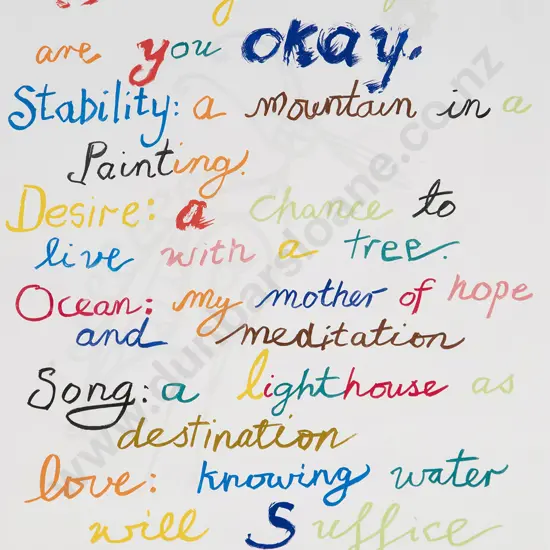 are you okay.
Stability: a mountain in a
Painting.
Desire: a chance to
live with a tree.
Ocean: my mother of hope
and meditation
Song: a lighthouse as
destination
love: knowing water
will Suffice
www.dunbarsloane.co.nz